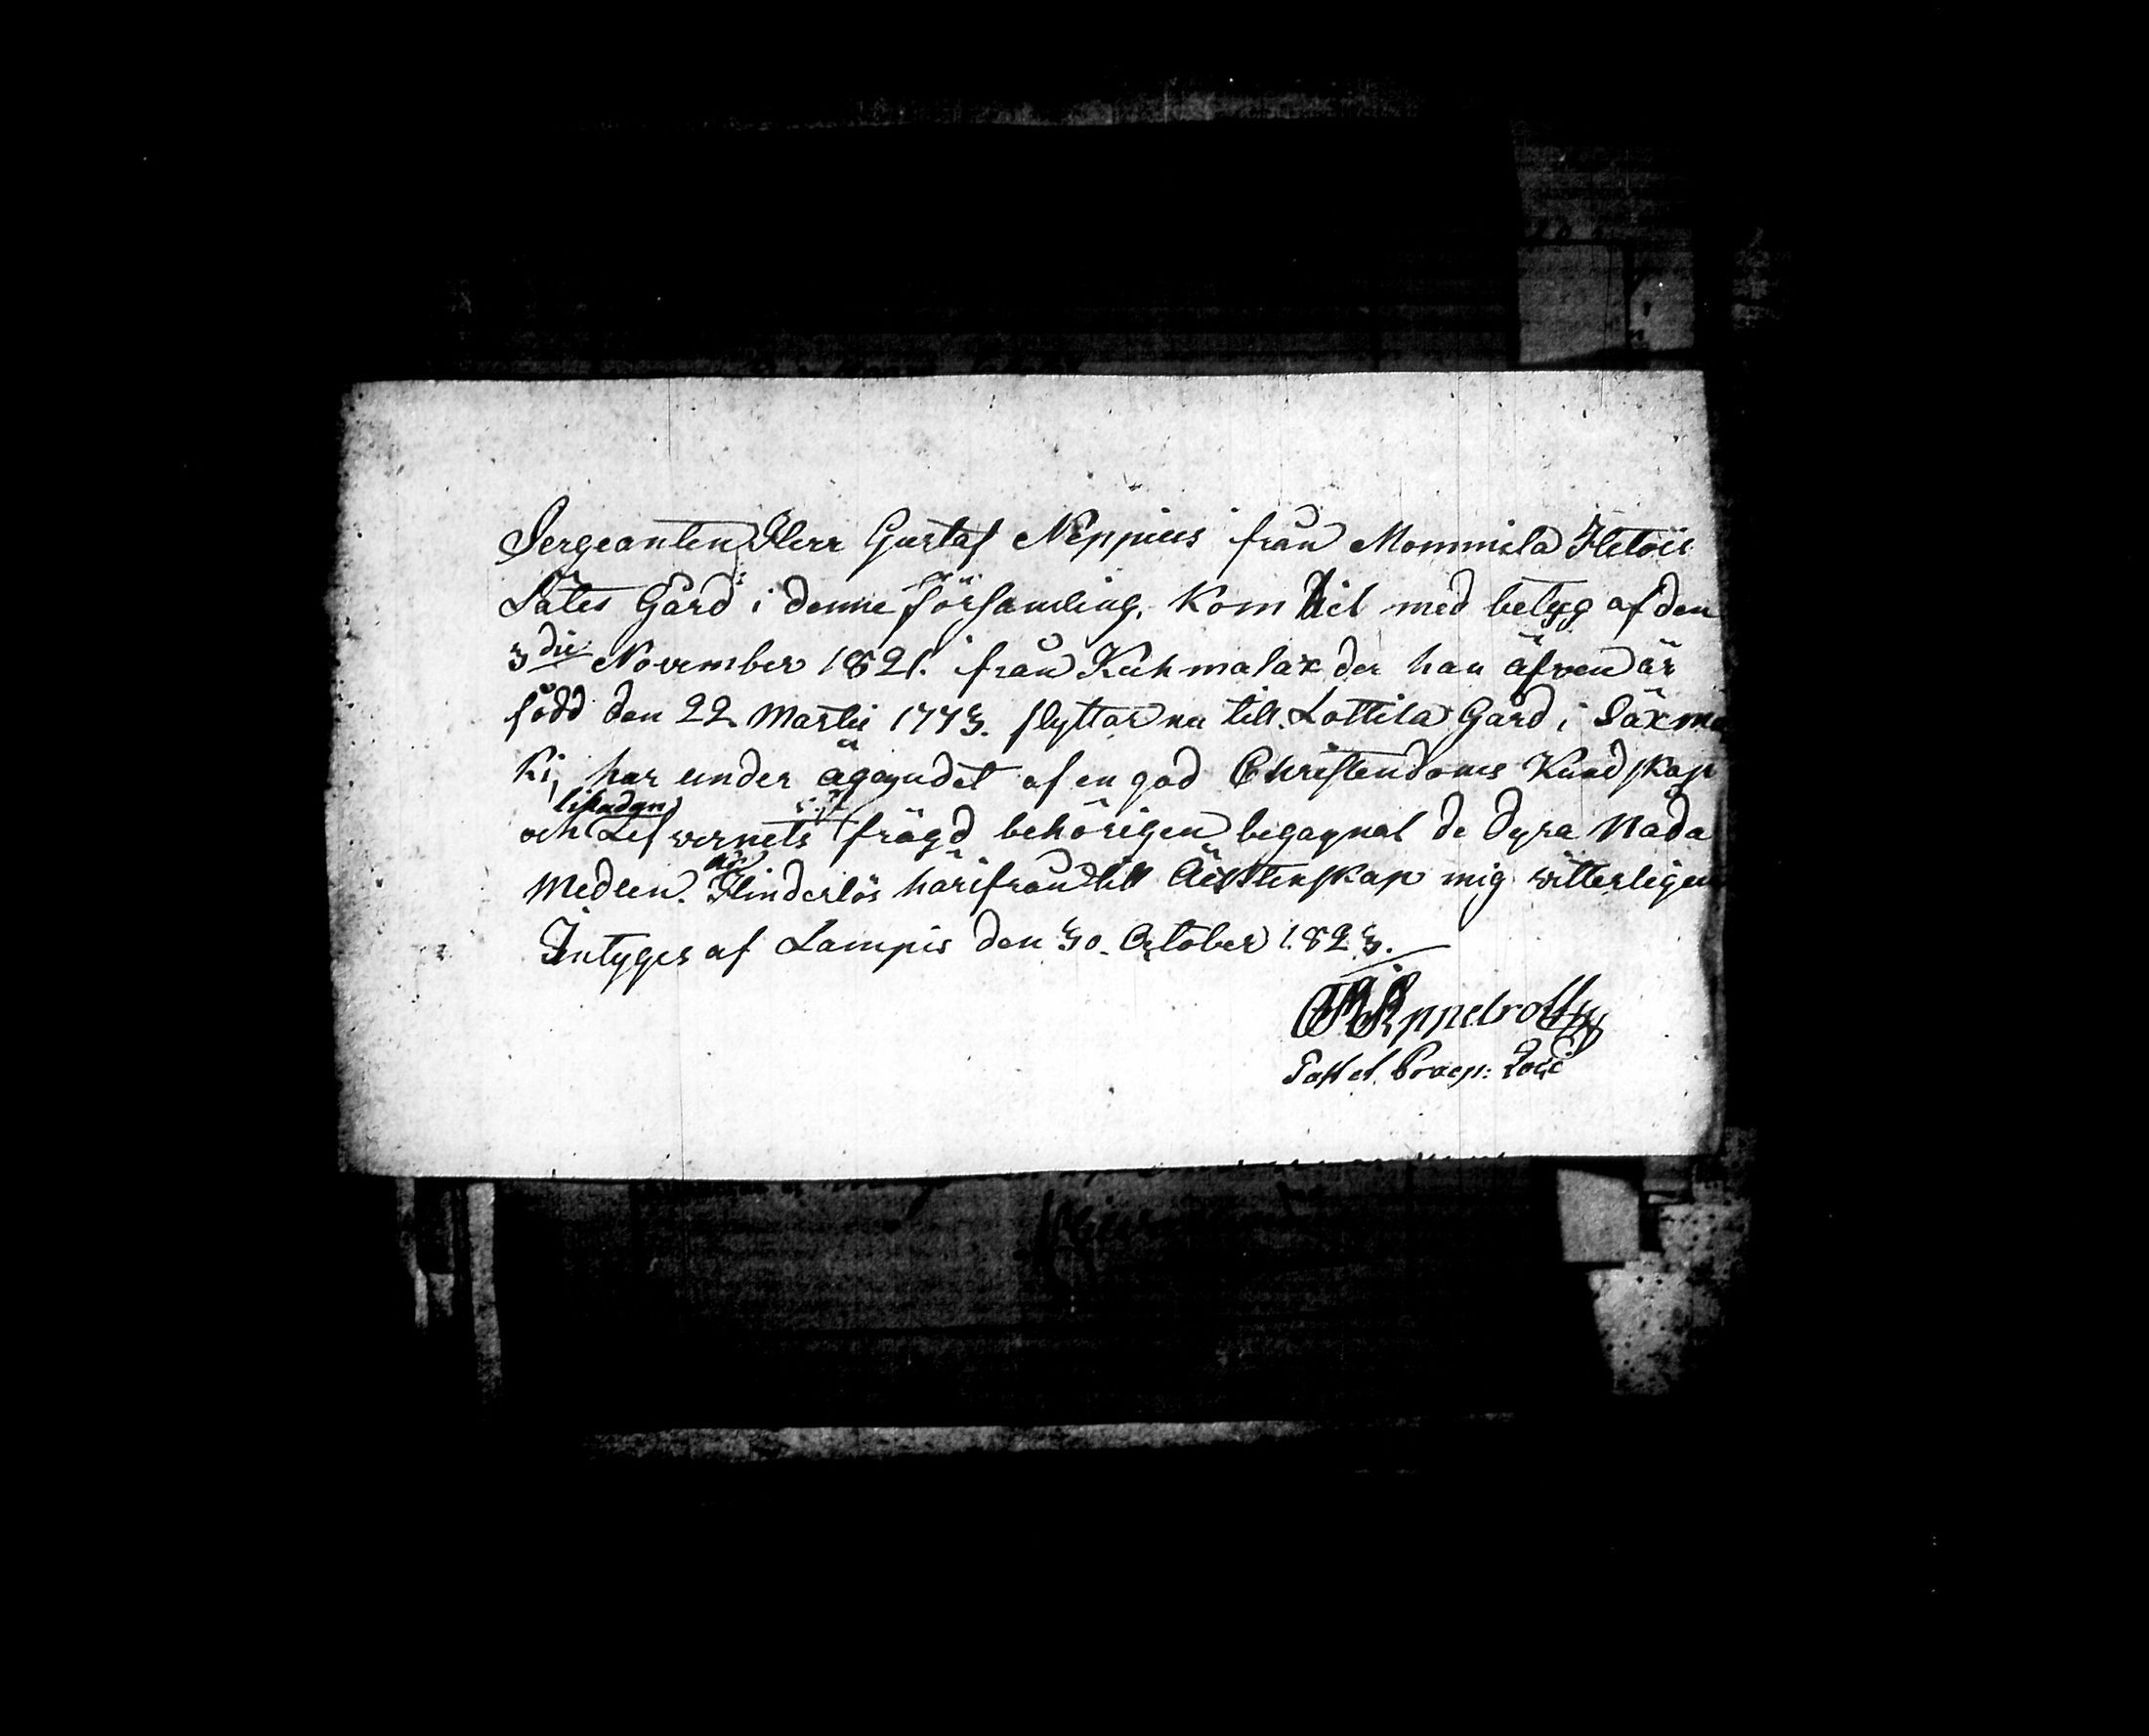 Sergeanten Herr Gustaf Neppius från Mommila Hietois
Sätes Gård i denne Församling, Kom hit med betyg af den
3die November 1821. från Kuhmalax der han äfven är
född den 22 Martii 1773. flyttar nu till Lottila Gård i Säxmä
ki, har under ägandet af en god Christendoms Kundskap
likadan
och Lefvernets frägd behörigen begagnat de dyra Nåda
Medlen. är Hinderlös härifrån till Äcktenskap mig vitterligen
Intyges af Lampis den 30. October 1823.
Appelroth
Past et. Praep: Loci